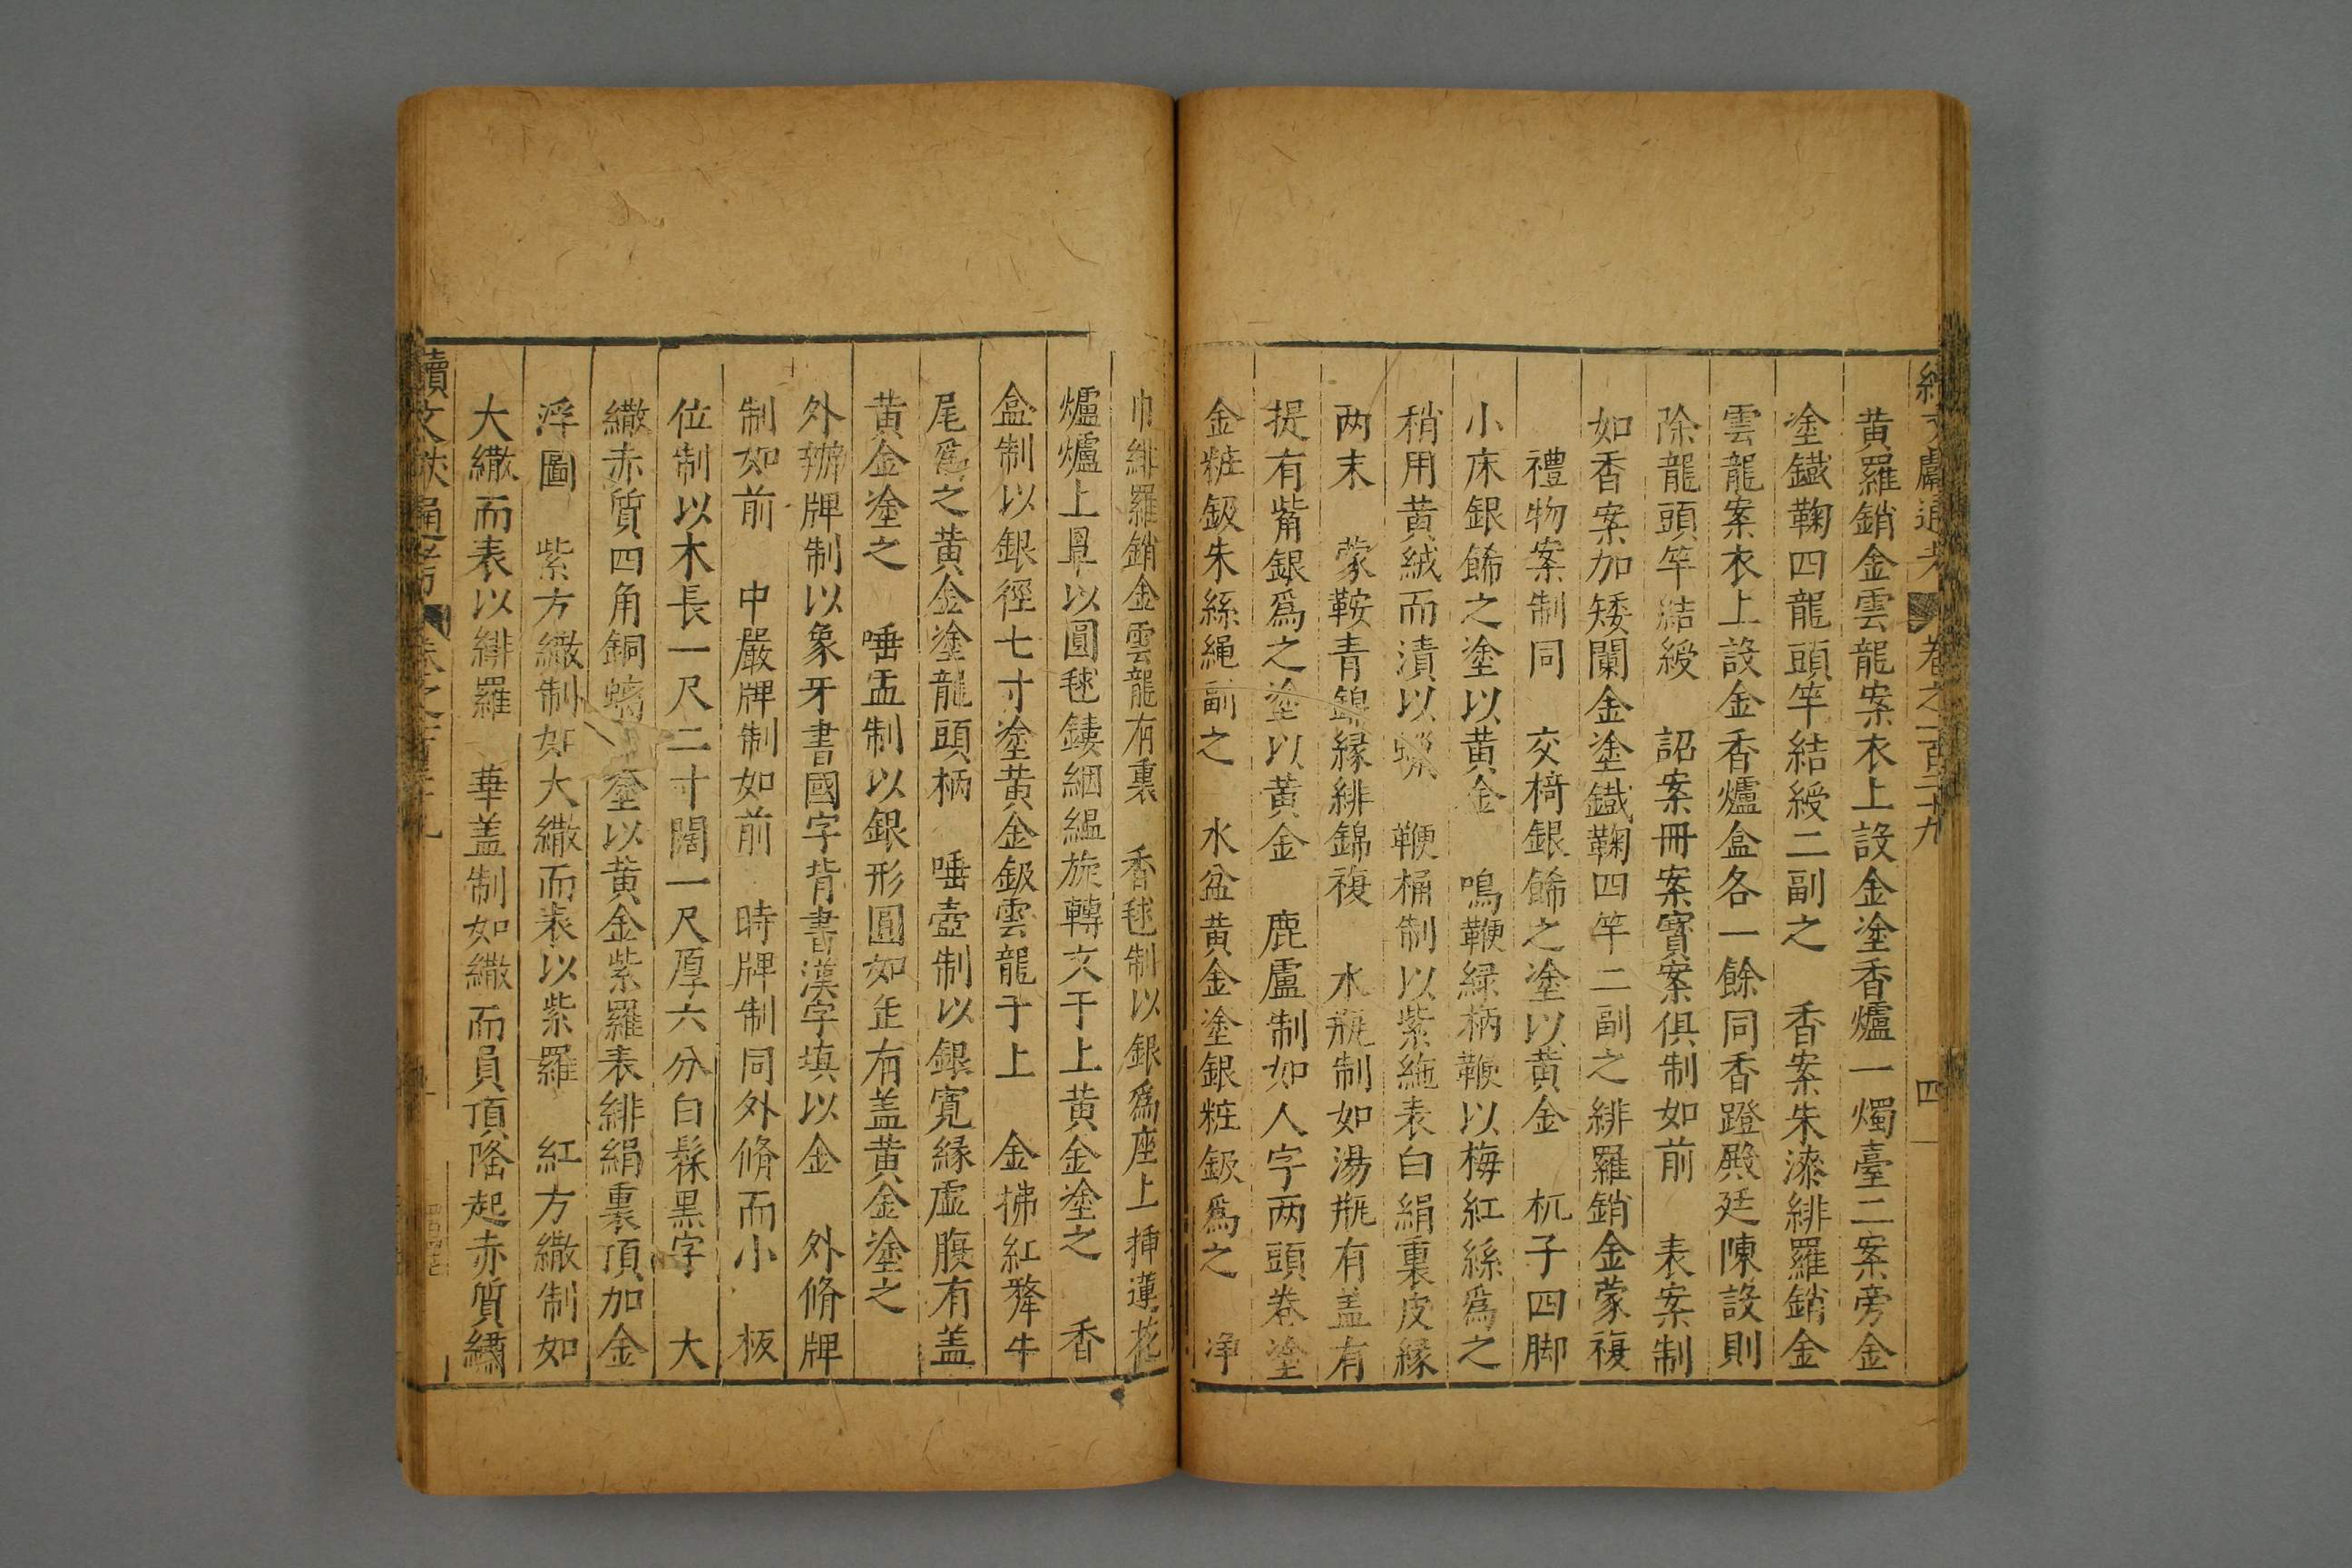 續文獻通考 卷之一百二十九 四
黄羅銷金雲龍案衣上設金塗香爐一燭臺二案旁金
塗鐵鞠四龍頭竿結綬二副之 香案朱漆緋羅銷金
雲龍案衣上設金香爐盒各一餘同香蹬殿廷陳設則
除龍頭竿結綬 詔案冊案寳案俱制如前 表案制
如香案加矮闌金塗鐵鞠四竿二副之緋羅銷金蒙複
禮物案制同 交椅銀餙之塗以黄金 杌子四脚
小床銀餙之塗以黄金 鳴鞭緑柄鞭以梅紅絲爲之
稍用黄絨而漬以蠟 鞭桶制以紫絁表白絹裏皮縁
两末 蒙鞍青錦縁緋錦複 水瓶制如湯瓶有盖有
提有觜銀爲之塗以黄金 鹿盧制如人字两頭卷塗
金粧鈒朱絲繩副之 水盆黄金塗銀粧鈒爲之 淨
巾緋羅銷金雲龍有裏 香毬制以銀爲座上挿蓮花
爐爐上罩以圓毬鏤絪緼旋轉文于上黄金塗之 香
盒制以銀徑七寸塗黄金鈒雲龍于上 金拂紅犛牛
尾爲之黄金塗龍頭柄 唾壺制以銀寛縁虚腹有盖
黄金塗之 唾盂制以銀形圓如缶有盖黄金塗之
外辦牌制以象牙書國字背書漢字填以金 外脩牌
制如前 中嚴牌制如前 時牌制同外脩而小 板
位制以木長一尺二寸闊一尺厚六分白髹黒字 大
繖赤質四角銅螭塗以黄金紫羅表緋絹裏頂加金
浮圖 紫方繖制如大繖而表以紫羅 紅方繖制如
大繖而表以緋羅 華盖制如繖而員頂隆起赤質繡
續文獻通考 卷之一百二十九